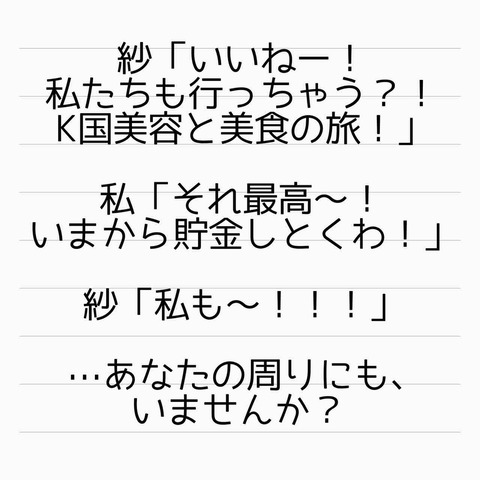 紗「いいねー！
私たちも行っちゃう？！
K国美容と美食の旅！」
私「それ最高〜！
いまから貯金しとくわ！」
紗「私も〜！！！」
…あなたの周りにも、
いませんか？